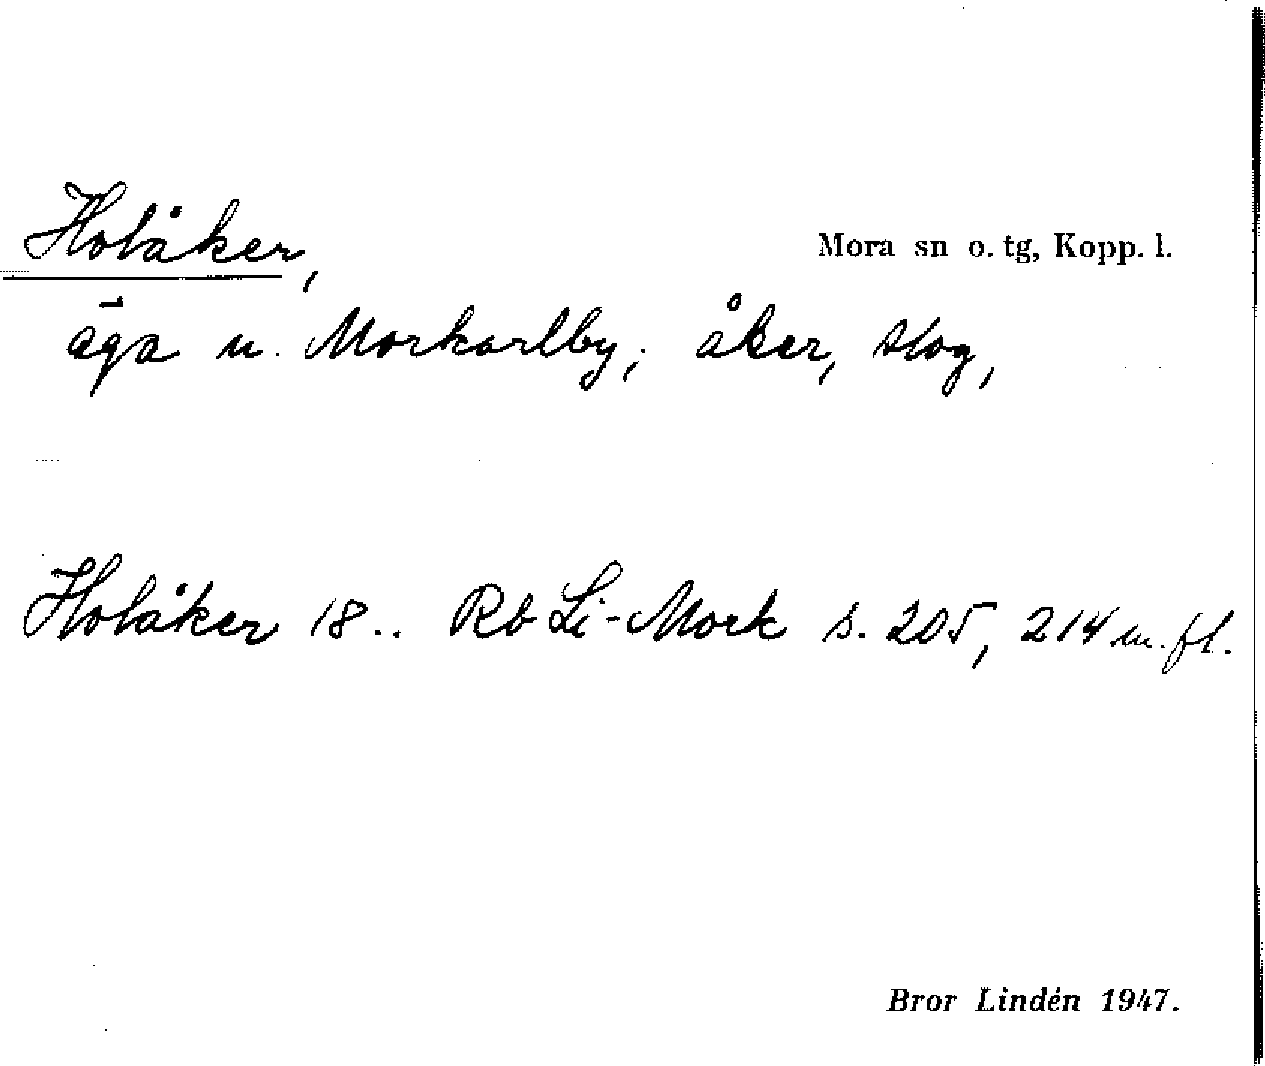 Holåker,
Mora sn o. tg, Kopp. l.
äga u. Morkarlby; åker, skog,
Holåker 18.. Rb Li-Mork s. 205, 214 m. fl.
Bror Lindén 1947.